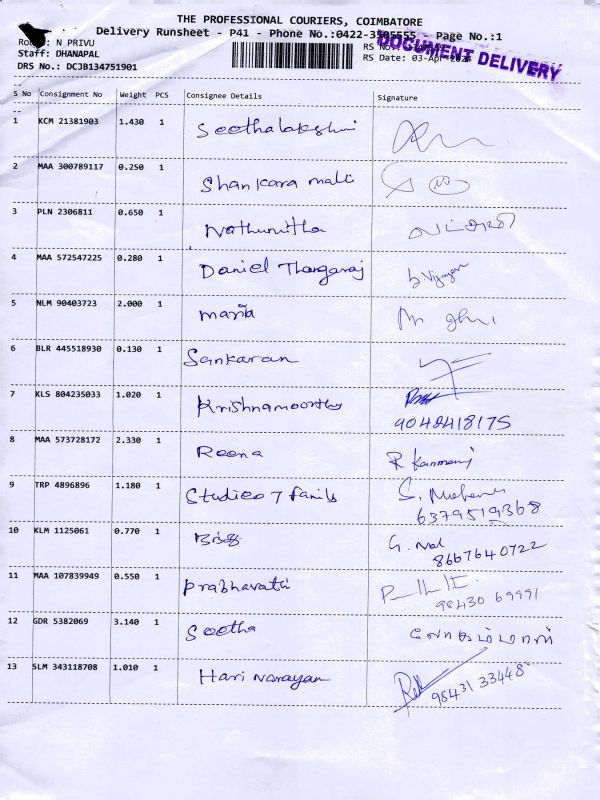 THE PROFESSIONAL COURIERS, COIMBATORE
Delivery Runsheet - P41 - Phone No.:0422-3505555 - Page No.:1
N PRIVU
Staff: DHANAPAL
DRS No.: DCJB134751901
RS No.:
RS Date: 03-Apr-2024
DOCUMENT DELIVERY
S No Consignment No Weight PCS Consignee Details Signature
1 KCM 21381903 1.430 1 Seethalakshmi
2 MAA 300789117 0.250 1 Shankara mali
3 PLN 2306811 0.650 1 Nathumitha
4 MAA 572547225 0.280 1 Daniel Thangaraj b Vijayan
5 NLM 90403723 2.000 1 maria
6 BLR 445518930 0.130 1 Sankaran
7 KLS 804235033 1.020 1 Krishnamoorthy
9042418175
8 MAA 573728172 2.330 1 Reena R Kanmani
9 TRP 4896896 1.180 1 Studieo 7 family
6379519368
10 KLM 1125061 0.770 1 G. Nal
8667640722
11 MAA 107839949 0.550 1 Prabhavathi
98430 69991
12 GDR 5382069 3.140 1 Seetha லோகம்மாள்
13 SLM 343118708 1.010 1 Hari Narayan
98431 33448